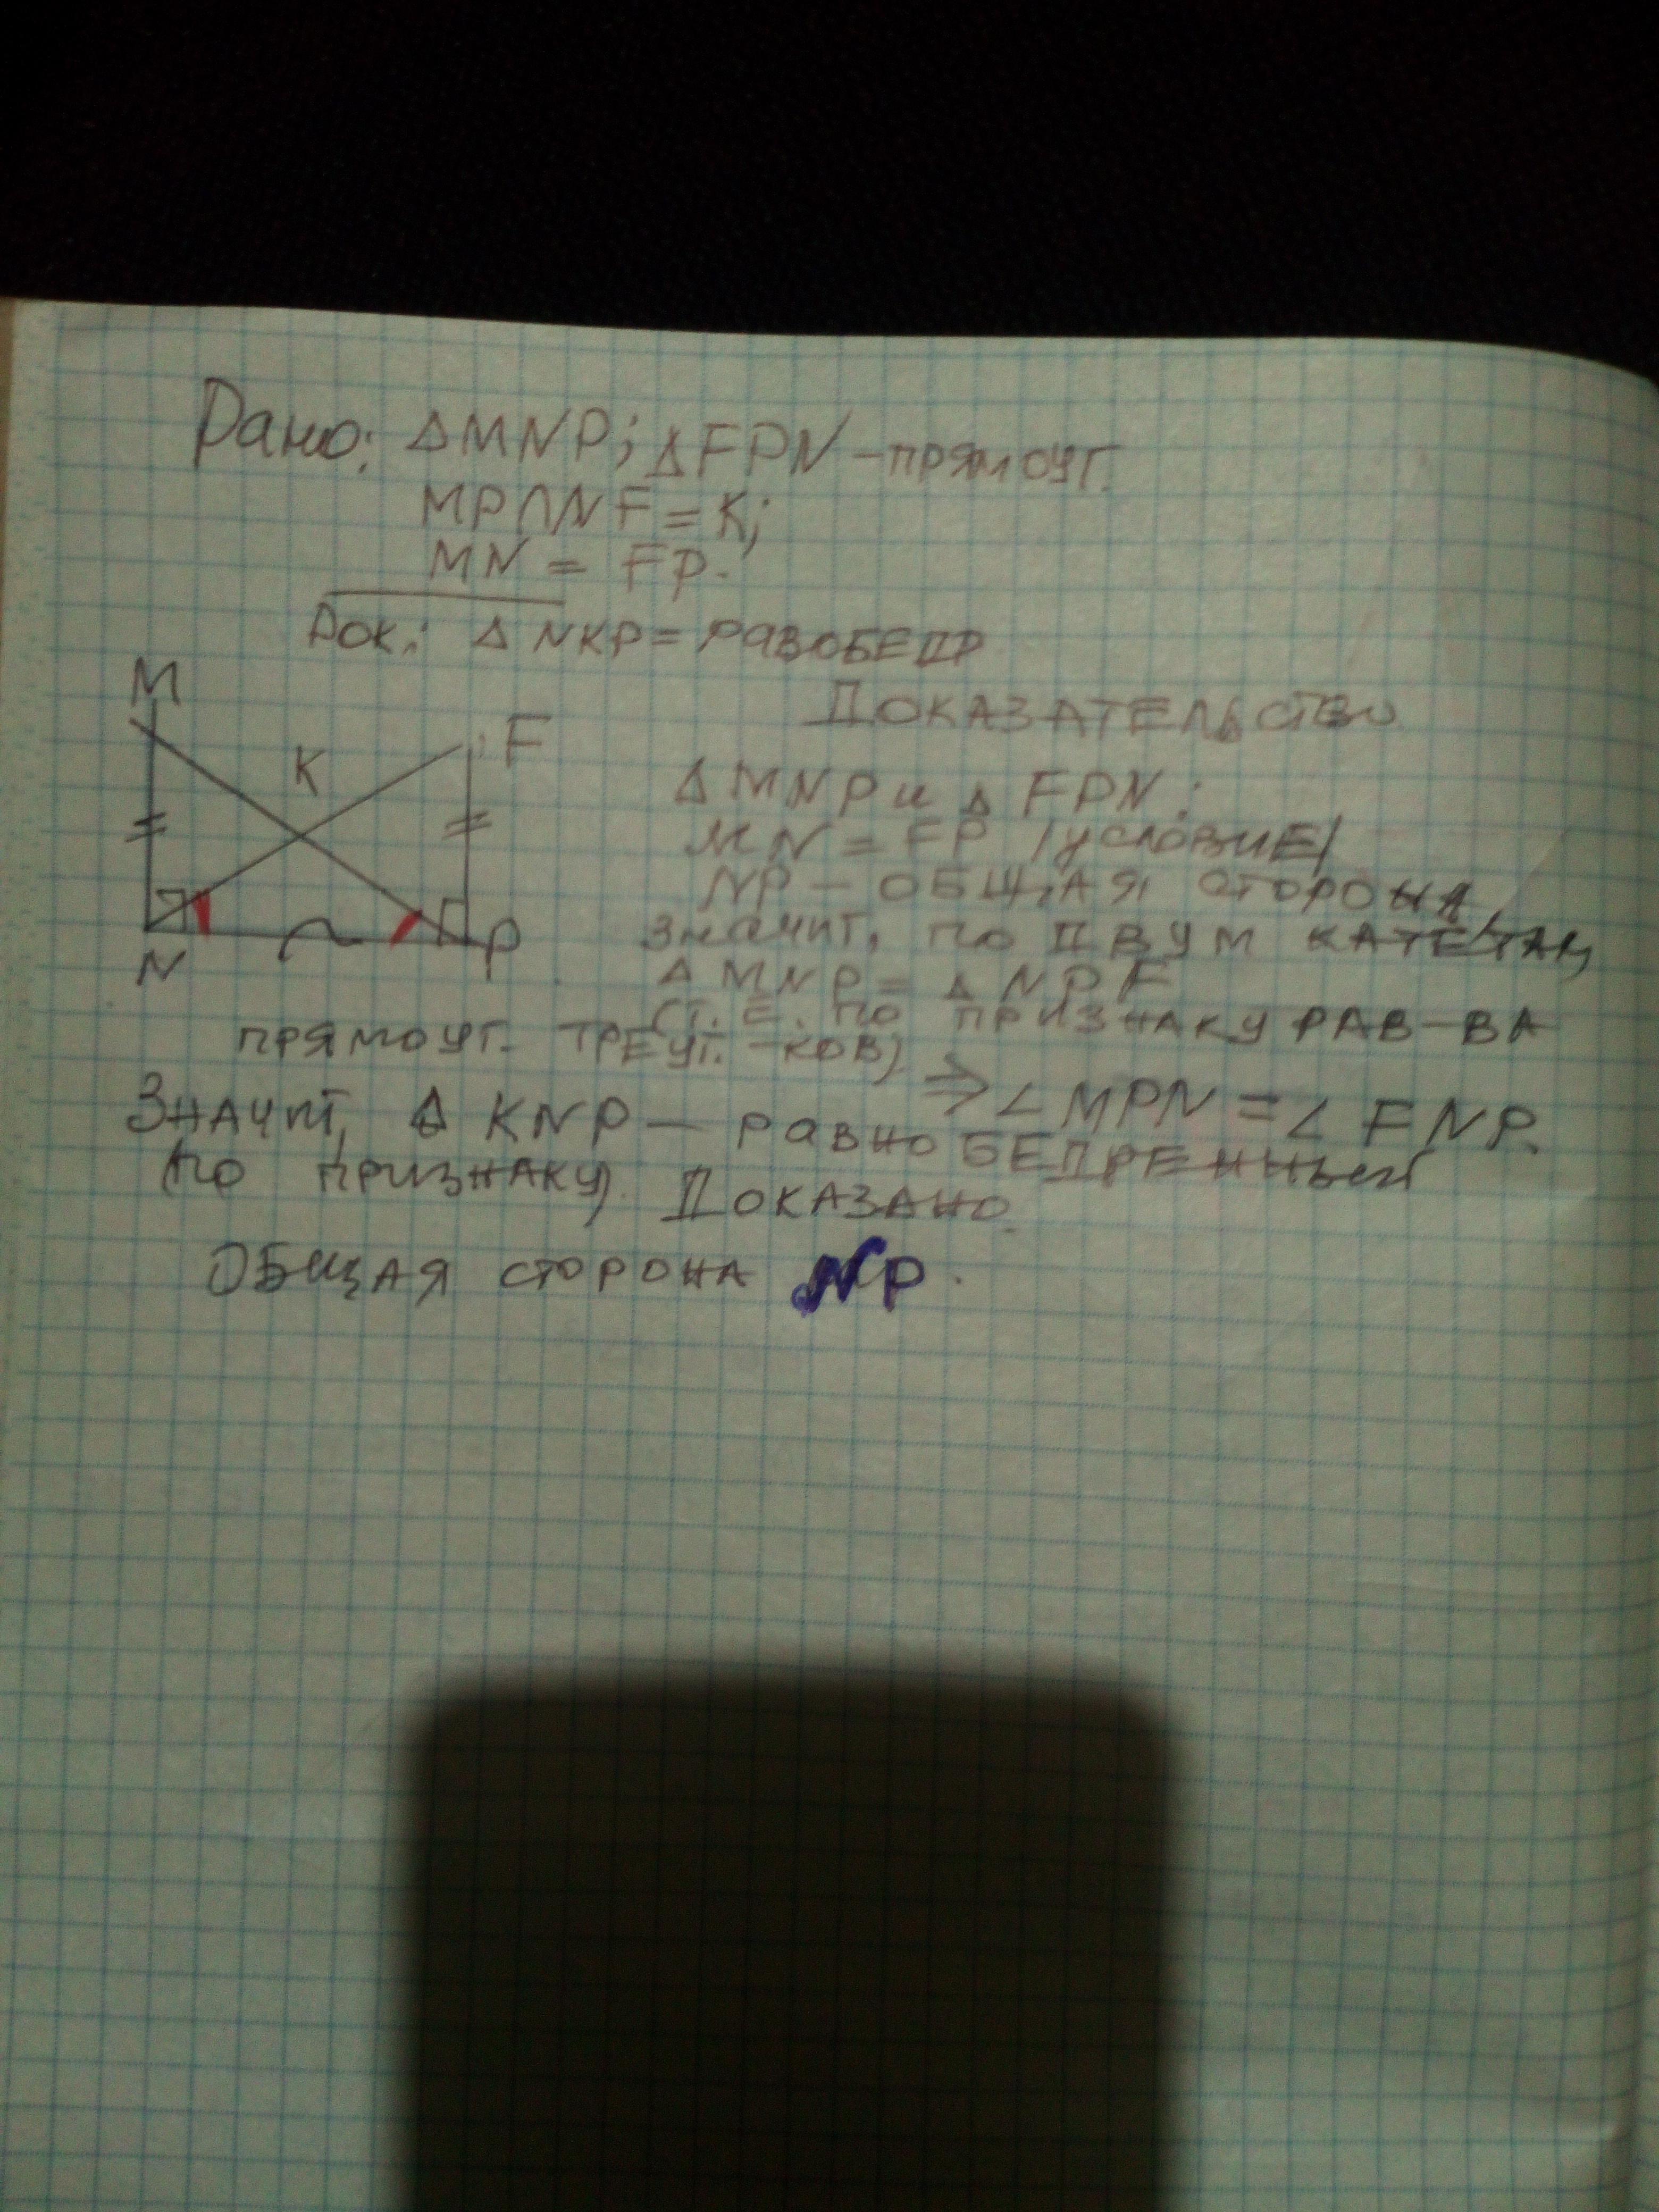 Дано: ΔMNP; ΔFPN – прямоуг.
MP∩NF = K;
MN = FP.
Док: Δ NKP = РАВОБЕДР
M
F
K
N
P
ДОКАЗАТЕЛЬСТВО
ΔMNP и Δ FPN:
MN = FP /условие/
NP – ОБЩАЯ СТОРОНА,
Значит, по ДВУМ КАТЕТАМ,
Δ MNP = Δ NPF
(Т. Е. ПО ПРИЗНАКУ РАВ-ВА
ПРЯМОУГ. ТРЕУГ.-КОВ)
⇒ ∠MPN = ∠ FNP.
Значит, Δ KNP – РАВНОБЕДРЕННЫЙ
(ПО ПРИЗНАКУ). ДОКАЗАНО.
ОБЩАЯ СТОРОНА NP.